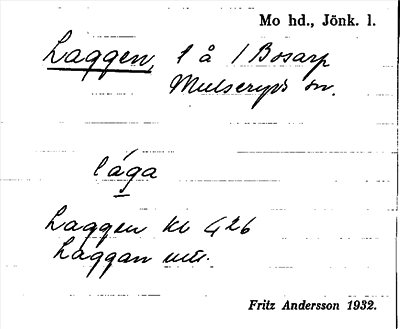 Mo hd., Jönk. l.
Laggen, l å / Bosarp
Mulseryds sn.
låga
Laggen kl 426
Laggan
Fritz Andersson 1932.